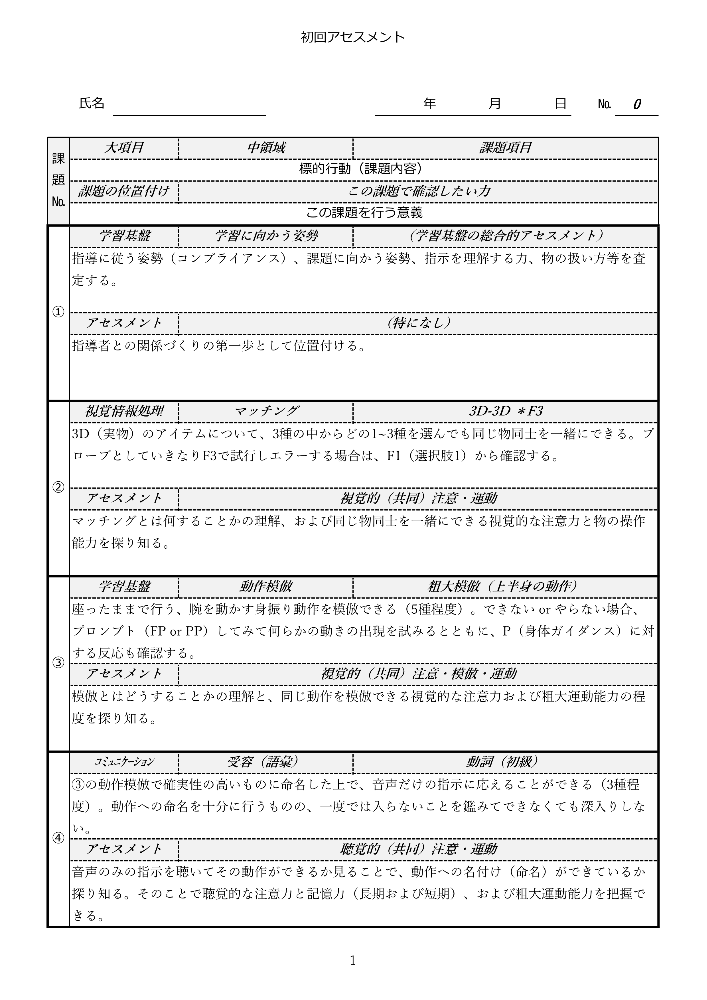 初回アセスメント
氏名 年 月 日 № 0
課題№ 大項目 中領域 課題項目
標的行動（課題内容）
課題の位置付け この課題で確認したい力
この課題を行う意義
① 学習基盤 学習に向かう姿勢 （学習基盤の総合的アセスメント）
指導に従う姿勢（コンプライアンス）、課題に向かう姿勢、指示を理解する力、物の扱い方等を査
定する。
アセスメント （特になし）
指導者との関係づくりの第一歩として位置付ける。
② 視覚情報処理 マッチング 3D-3D ＊F3
3D（実物）のアイテムについて、3種の中からどの1~3種を選んでも同じ物同士を一緒にできる。プ
ローブとしていきなりF3で試行しエラーする場合は、F1（選択肢1）から確認する。
アセスメント 視覚的（共同）注意・運動
マッチングとは何することかの理解、および同じ物同士を一緒にできる視覚的な注意力と物の操作
能力を探り知る。
③ 学習基盤 動作模倣 粗大模倣（上半身の動作）
座ったままで行う、腕を動かす身振り動作を模倣できる（5種程度）。できない or やらない場合、
プロンプト（FP or PP）してみて何らかの動きの出現を試みるとともに、P（身体ガイダンス）に対
する反応も確認する。
アセスメント 視覚的（共同）注意・模倣・運動
模倣とはどうすることかの理解と、同じ動作を模倣できる視覚的な注意力および粗大運動能力の程
度を探り知る。
④ コミュニケーション 受容（語彙） 動詞（初級）
③の動作模倣で確実性の高いものに命名した上で、音声だけの指示に応えることができる（3種程
度）。動作への命名を十分に行うものの、一度では入らないことを鑑みてできなくても深入りしな
い。
アセスメント 聴覚的（共同）注意・運動
音声のみの指示を聴いてその動作ができるか見ることで、動作への名付け（命名）ができているか
探り知る。そのことで聴覚的な注意力と記憶力（長期および短期）、および粗大運動能力を把握で
きる。
1